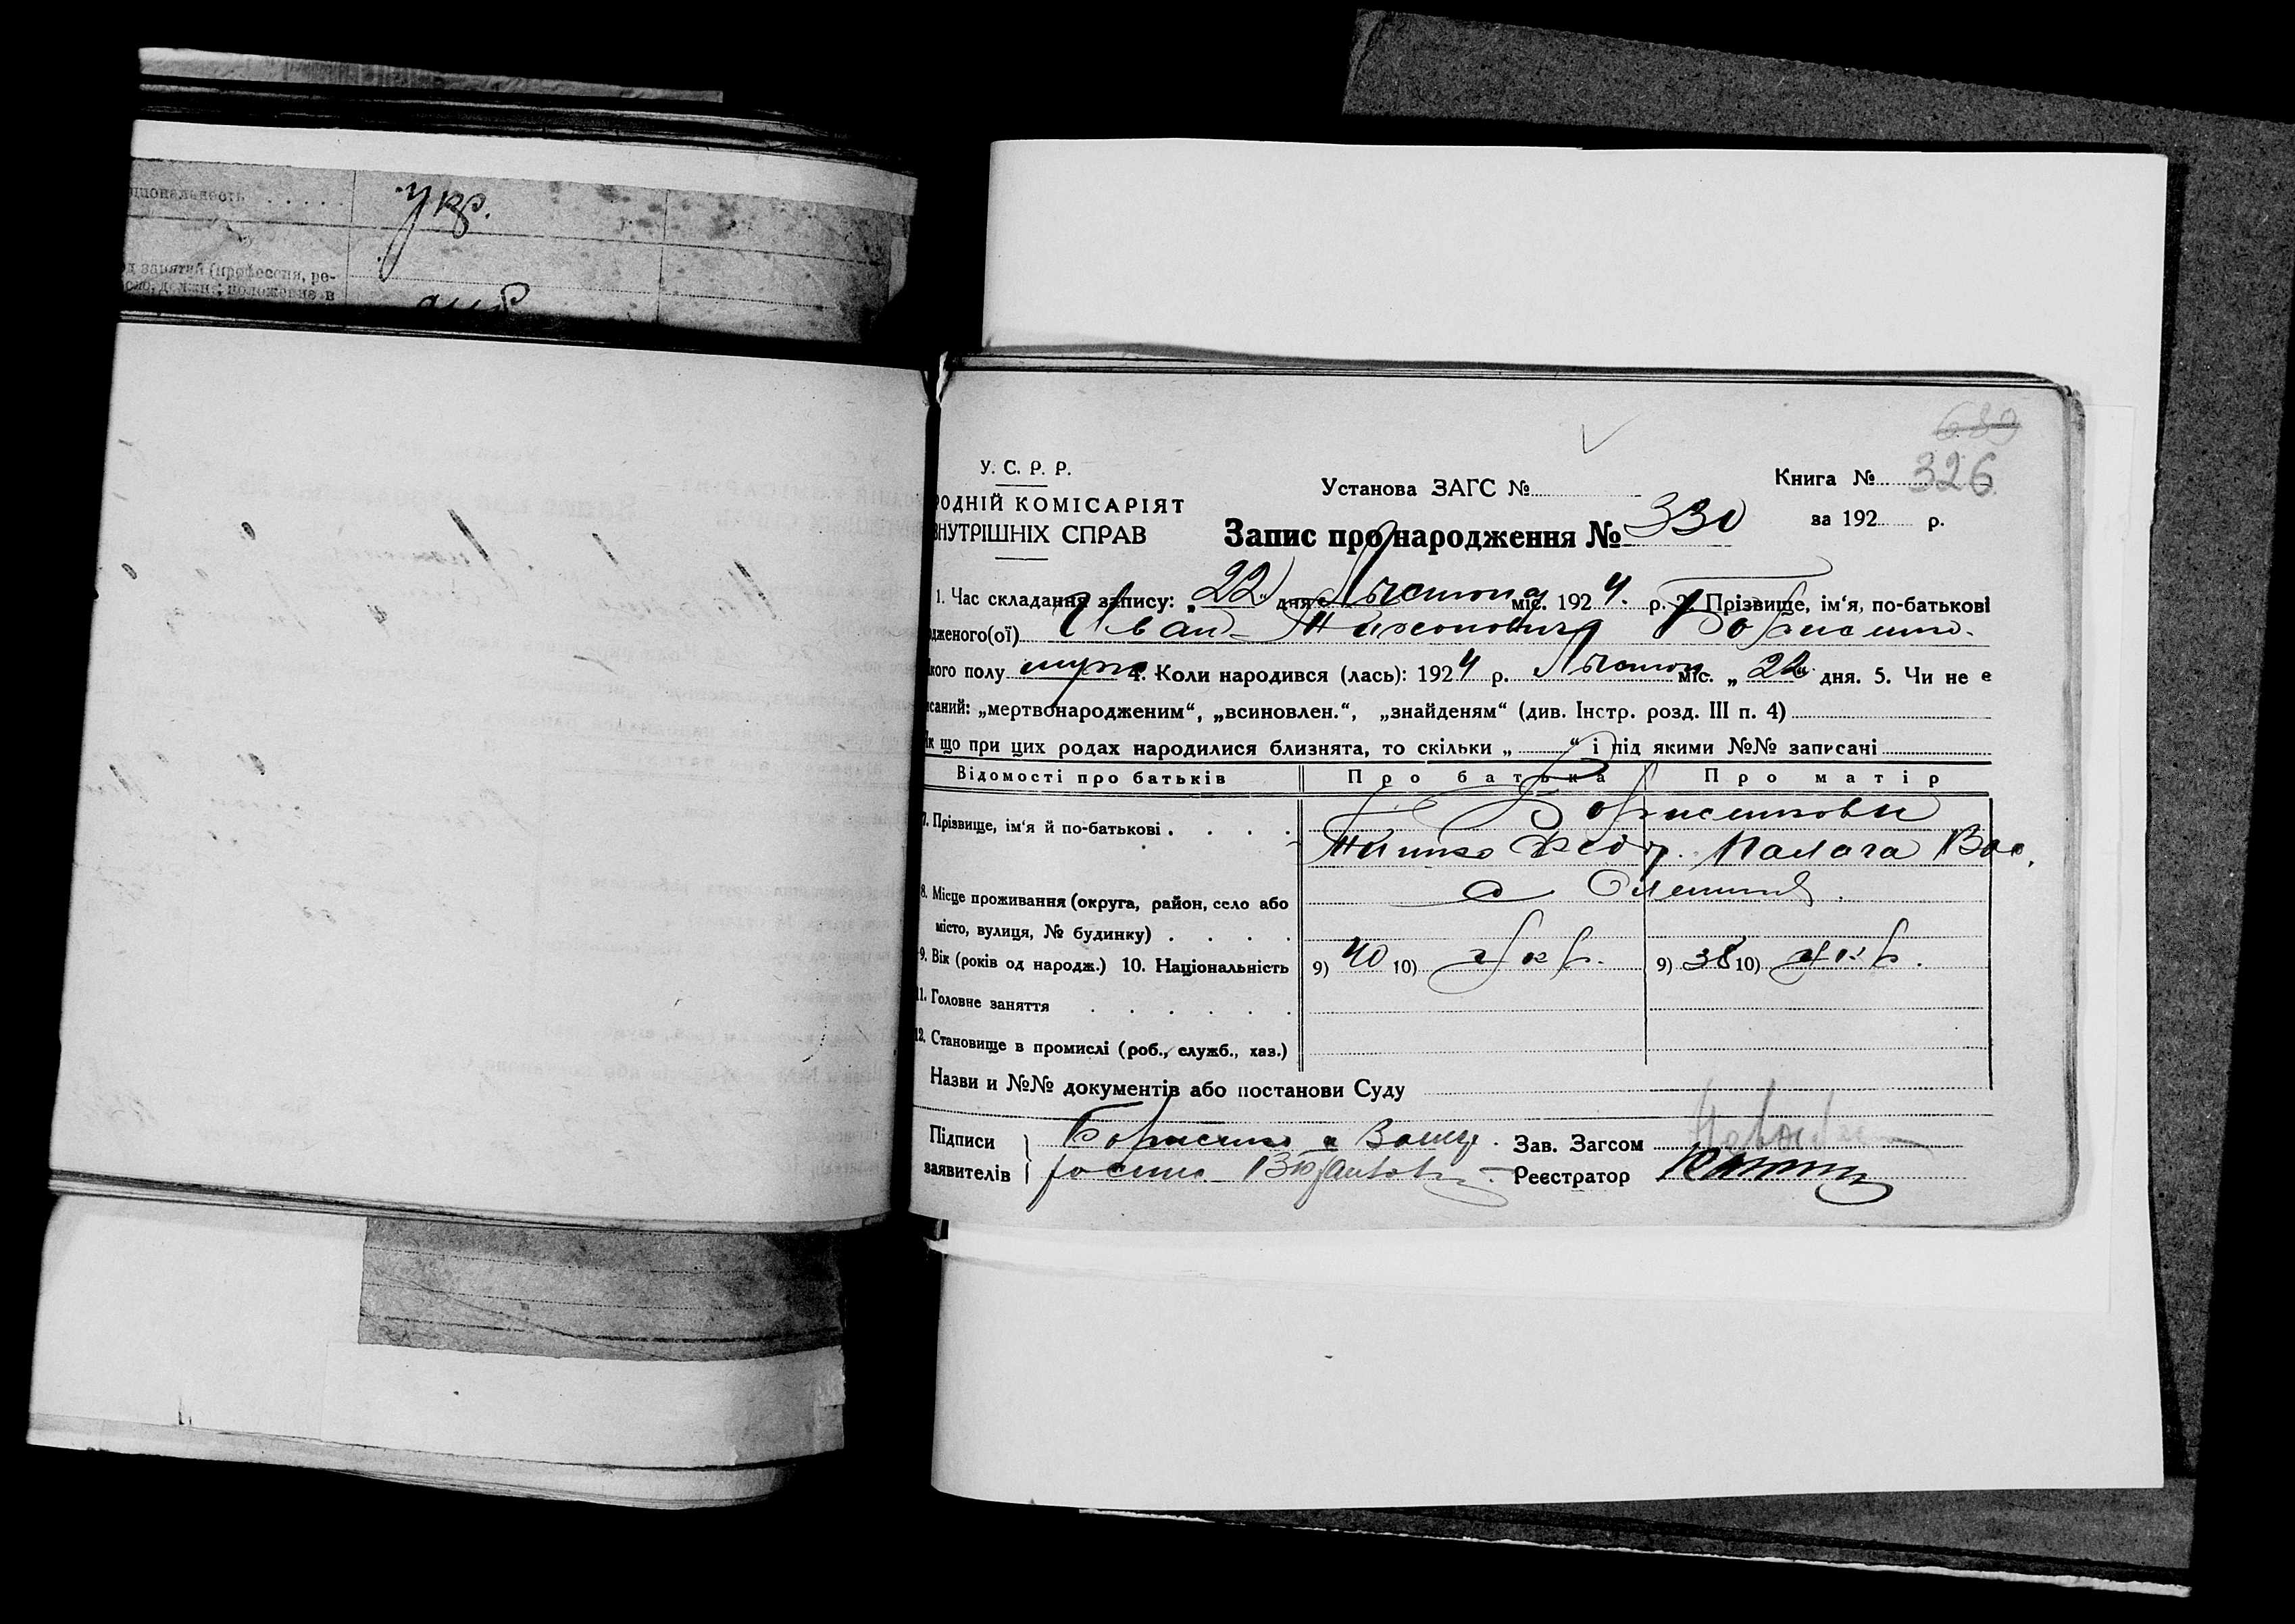 ціональность . . . . .
укр.
од занятий (профессия, ре-
У. С. Р. Р.
РОДНІЙ КОМІСАРІЯТ
ВНУТРІШНІХ СПРАВ
Установа ЗАГС №
Книга №
689
326
за 192 р.
Запис про народження № 330
1. Час складання запису: „22“ дня Лістопад міс. 1924. р. 2. Прізвище, ім‘я, по-батькові
дженого(ої) Іван Тихонович Борисенко.
кого полу муж 4. Коли народився (лась): 1924 р. Лістоп міс. „22“ дня. 5. Чи не є
исаний: „мертвонародженим“, „всиновлен.“, „знайденям“ (див. Інстр. розд. III п. 4)
Як що при цих родах народилися близнята, то скільки „ “ і під якими №№ записані
Відомості про батьків Про батька Про матір
7. Прізвище, ім‘я й по-батькові . . . .
Федр. Палага Вас.
8. Місце проживання (округа, район, село або
місто, вулиця, № будинку) . . . .
9. Вік (років од народж.) 10. Національність 9) 40 10) укр. 9) 38 10) укр.
11. Головне заняття . . . . . .
12. Становище в промислі (роб., служб., хаз.)
Назви и №№ документів або постанови Суду
Підписи
заявителів
Борисенко
Зав. Загсом
Реєстратор